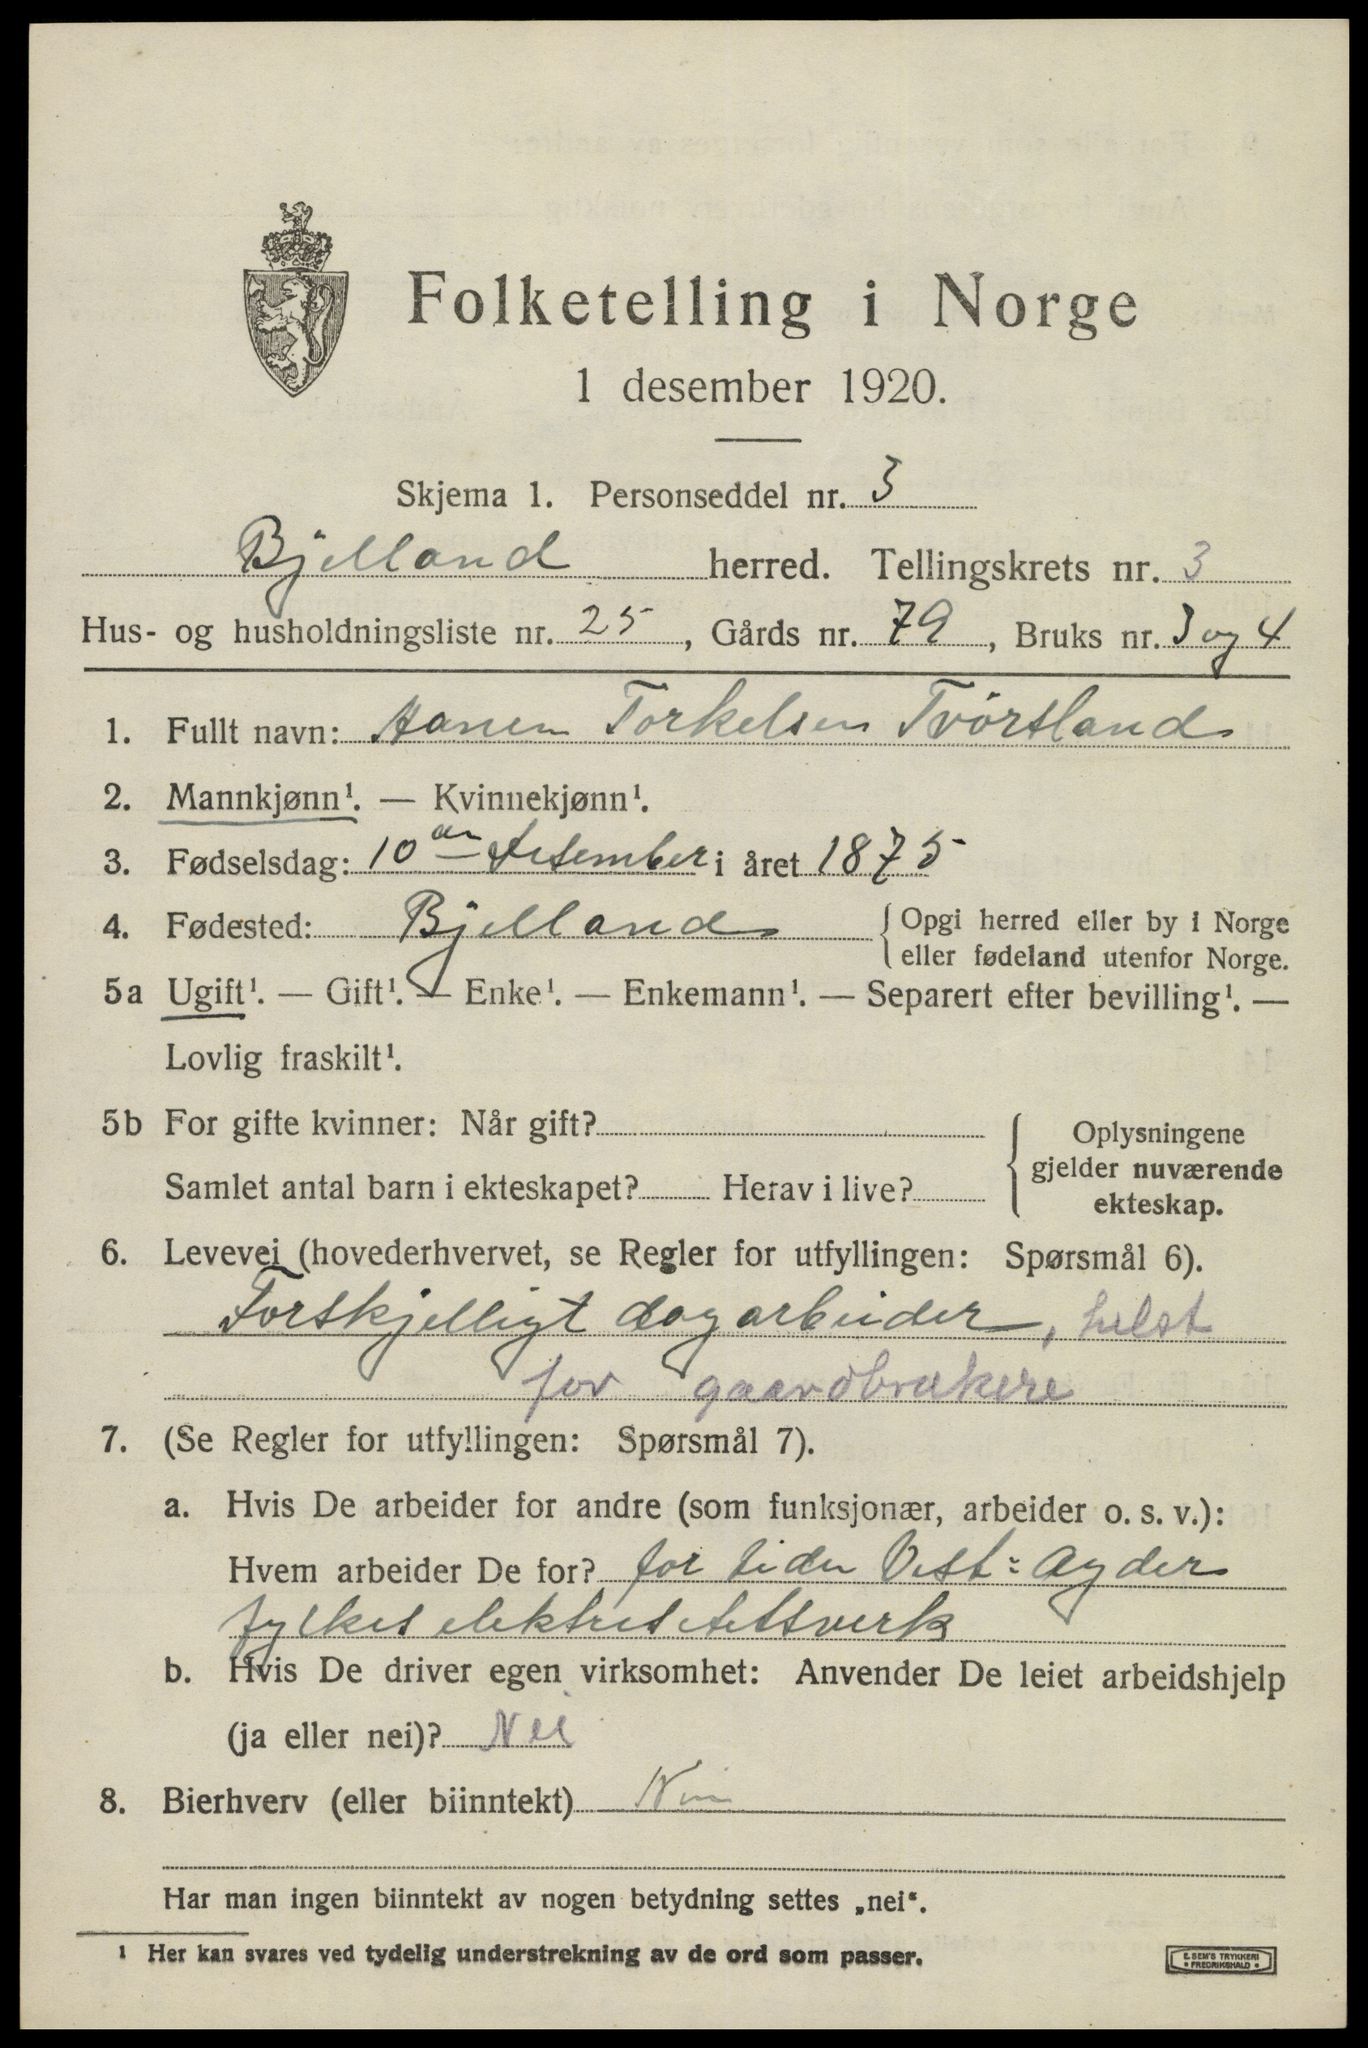 Folketelling i Norge
1 desember 1920.
Skjema 1. Personseddel nr. 3
Bjelland herred. Tellingskrets nr. 3
Hus- og husholdningsliste nr. 25, Gårds nr. 79, Bruks nr. 3 og 4
1. Fullt navn: Hanen Torkelsen Tvörsland
2. Mannkjønn¹. — Kvinnekjønn¹.
3. Fødselsdag: 10de Desember i året 1875
4. Fødested: Bjelland { Opgi herred eller by i Norge
eller fødeland utenfor Norge.
5a Ugift¹. — Gift¹. — Enke¹. — Enkemann¹. — Separert efter bevilling¹. —
Lovlig fraskilt¹.
5b For gifte kvinner: Når gift?
Samlet antal barn i ekteskapet? Herav i live?
{ Oplysningene
gjelder nuværende
ekteskap.
6. Levevei (hovederhvervet, se Regler for utfyllingen: Spørsmål 6).
Forskjelligt dagarbeider, helst
for gaardbrukere
7. (Se Regler for utfyllingen: Spørsmål 7).
a. Hvis De arbeider for andre (som funksjonær, arbeider o. s. v.):
Hvem arbeider De for? for tiden Vest-Agder
fylkes elektrisitetsverk
b. Hvis De driver egen virksomhet: Anvender De leiet arbeidshjelp
(ja eller nei)? Nei
8. Bierhverv (eller biinntekt) Nei
Har man ingen biinntekt av nogen betydning settes „nei“.
¹ Her kan svares ved tydelig understrekning av de ord som passer.
E. SEM'S TRYKKERI
FREDRIKSHALD